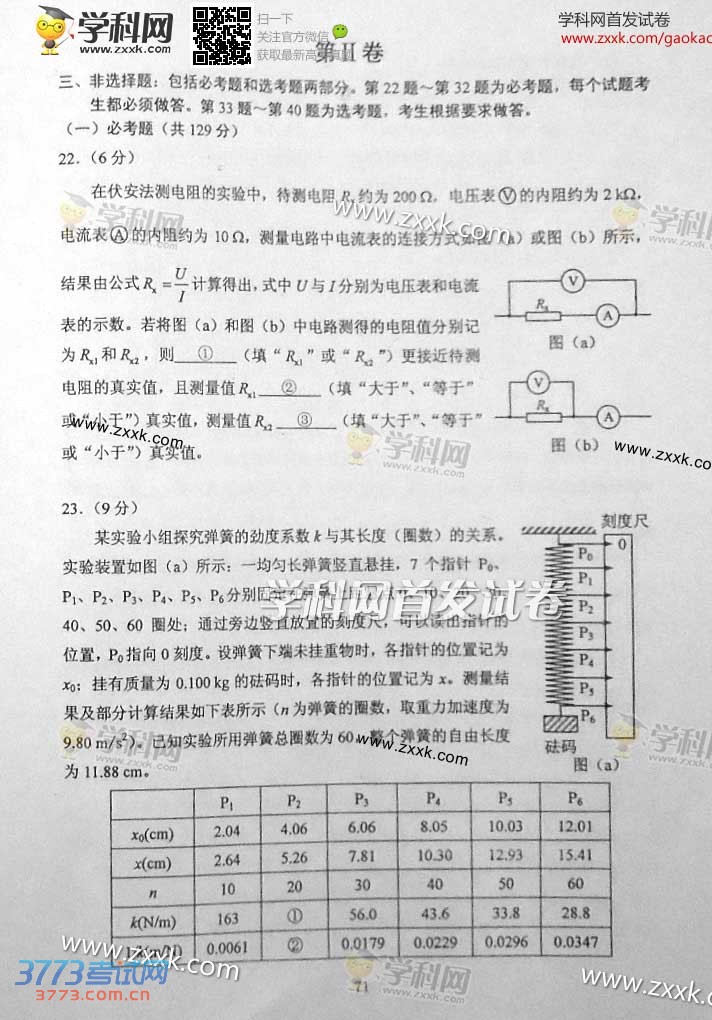 学科网
www.zxxk.com
扫一下
关注官方微信
获取最新高考真题
学科网首发试卷
www.zxxk.com/gaokao
第Ⅱ卷
三、非选择题：包括必考题和选考题两部分。第 22 题～第 32 题为必考题，每个试题考
生都必须做答。第 33 题～第 40 题为选考题，考生根据要求做答。
（一）必考题（共 129 分）
22．（6 分）
在伏安法测电阻的实验中，待测电阻 Rx 约为 200 Ω，电压表 Ⓥ 的内阻约为 2 kΩ，
电流表 Ⓐ 的内阻约为 10 Ω，测量电路中电流表的连接方式如图（a）或图（b）所示，
结果由公式 Rx = U/I 计算得出，式中 U 与 I 分别为电压表和电流
表的示数。若将图（a）和图（b）中电路测得的电阻值分别记
为 Rx1 和 Rx2，则 ① （填“Rx1”或“Rx2”）更接近待测
电阻的真实值，且测量值 Rx1 ② （填“大于”、“等于”
或“小于”）真实值，测量值 Rx2 ③ （填“大于”、“等于”
或“小于”）真实值。
V
Rx
A
图（a）
V
Rx
A
图（b）
23．（9 分）
某实验小组探究弹簧的劲度系数 k 与其长度（圈数）的关系。
实验装置如图（a）所示：一均匀长弹簧竖直悬挂，7 个指针 P0、
P1、P2、P3、P4、P5、P6 分别固定在弹簧上
40、50、60 圈处；通过旁边竖直放置的刻度尺，可以读出指针的
位置，P0 指向 0 刻度。设弹簧下端未挂重物时，各指针的位置记为
x0；挂有质量为 0.100 kg 的砝码时，各指针的位置记为 x。测量结
果及部分计算结果如下表所示（n 为弹簧的圈数，取重力加速度为
9.80 m/s²）。已知实验所用弹簧总圈数为 60，整个弹簧的自由长度
为 11.88 cm。
刻度尺
0
P0
P1
P2
P3
P4
P5
P6
砝码
图（a）
P1 P2 P3 P4 P5 P6
x0(cm) 2.04 4.06 6.06 8.05 10.03 12.01
x(cm) 2.64 5.26 7.81 10.30 12.93 15.41
n 10 20 30 40 50 60
k(N/m) 163 ① 56.0 43.6 33.8 28.8
1/k(m/N) 0.0061 ② 0.0179 0.0229 0.0296 0.0347
71
3773考试网
3773.com.cn
学科网首发试卷
www.zxxk.com